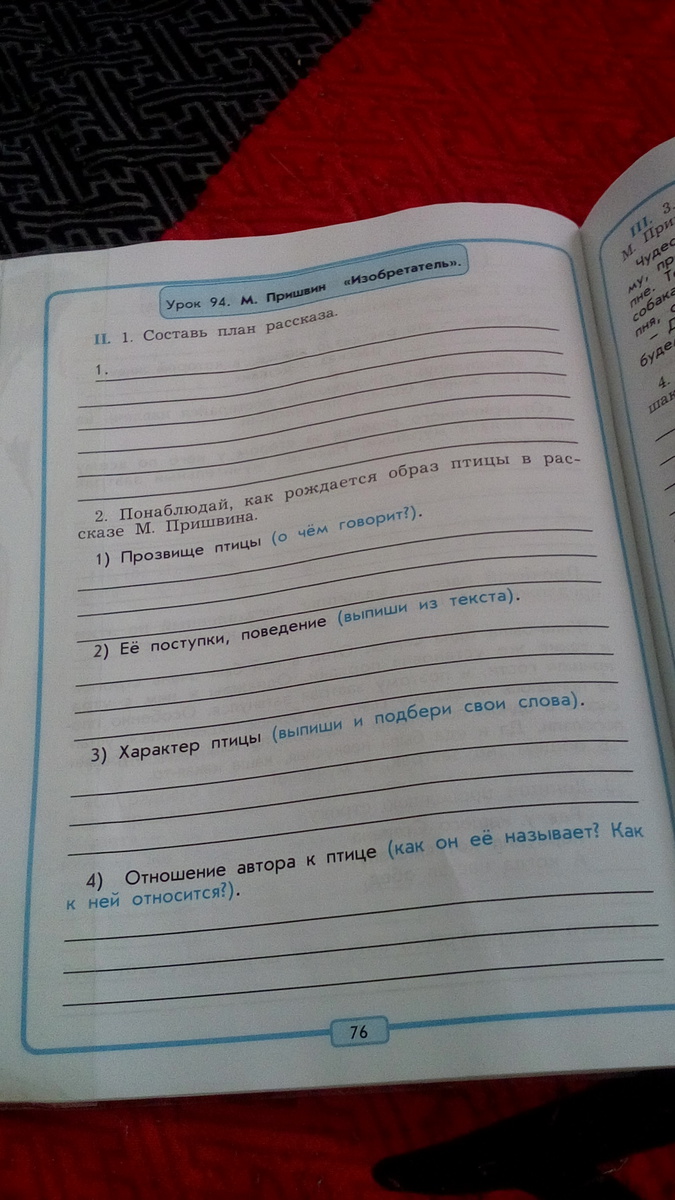 Урок 94. М. Пришвин «Изобретатель».
II. 1. Составь план рассказа.
1.
2. Понаблюдай, как рождается образ птицы в рас-
сказе М. Пришвина.
1) Прозвище птицы (о чём говорит?).
2) Её поступки, поведение (выпиши из текста).
3) Характер птицы (выпиши и подбери свои слова).
4) Отношение автора к птице (как он её называет? Как
к ней относится?).
76
III. 3.
М. При
Чудес
му, пр
пне. Т
собака
пня, с
– Д
буде
4.
шак